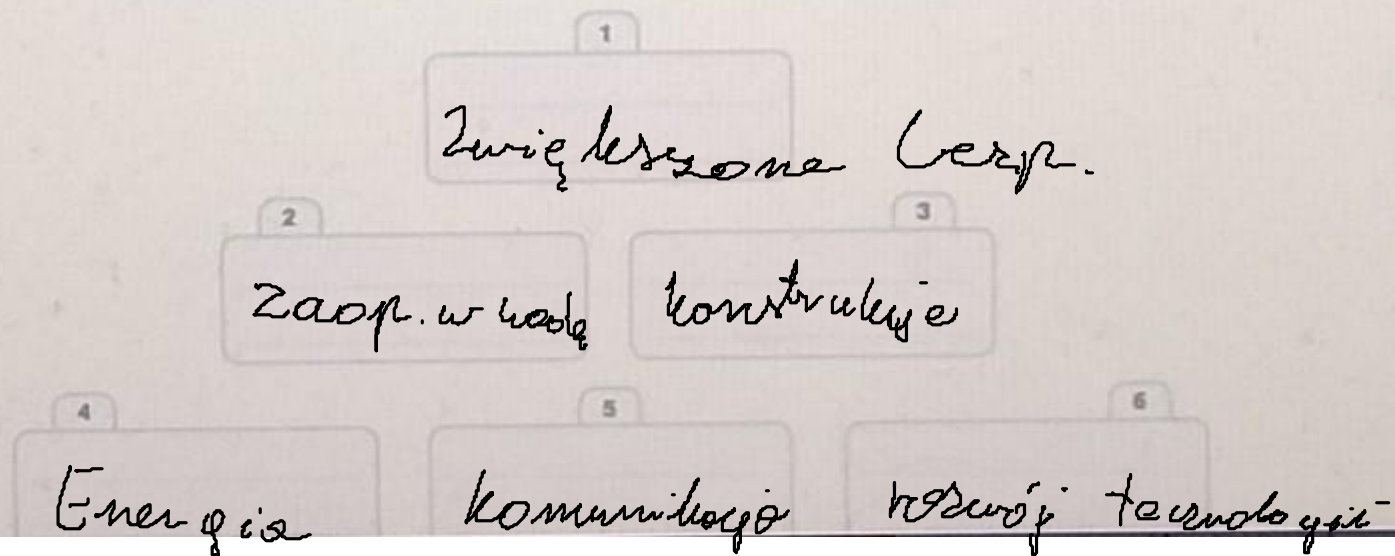 1
Zwiększone bezp.
2 3
zaop. w wodę konstrukcje
4 5 6
Energia komunikacja rozwój tecznologii